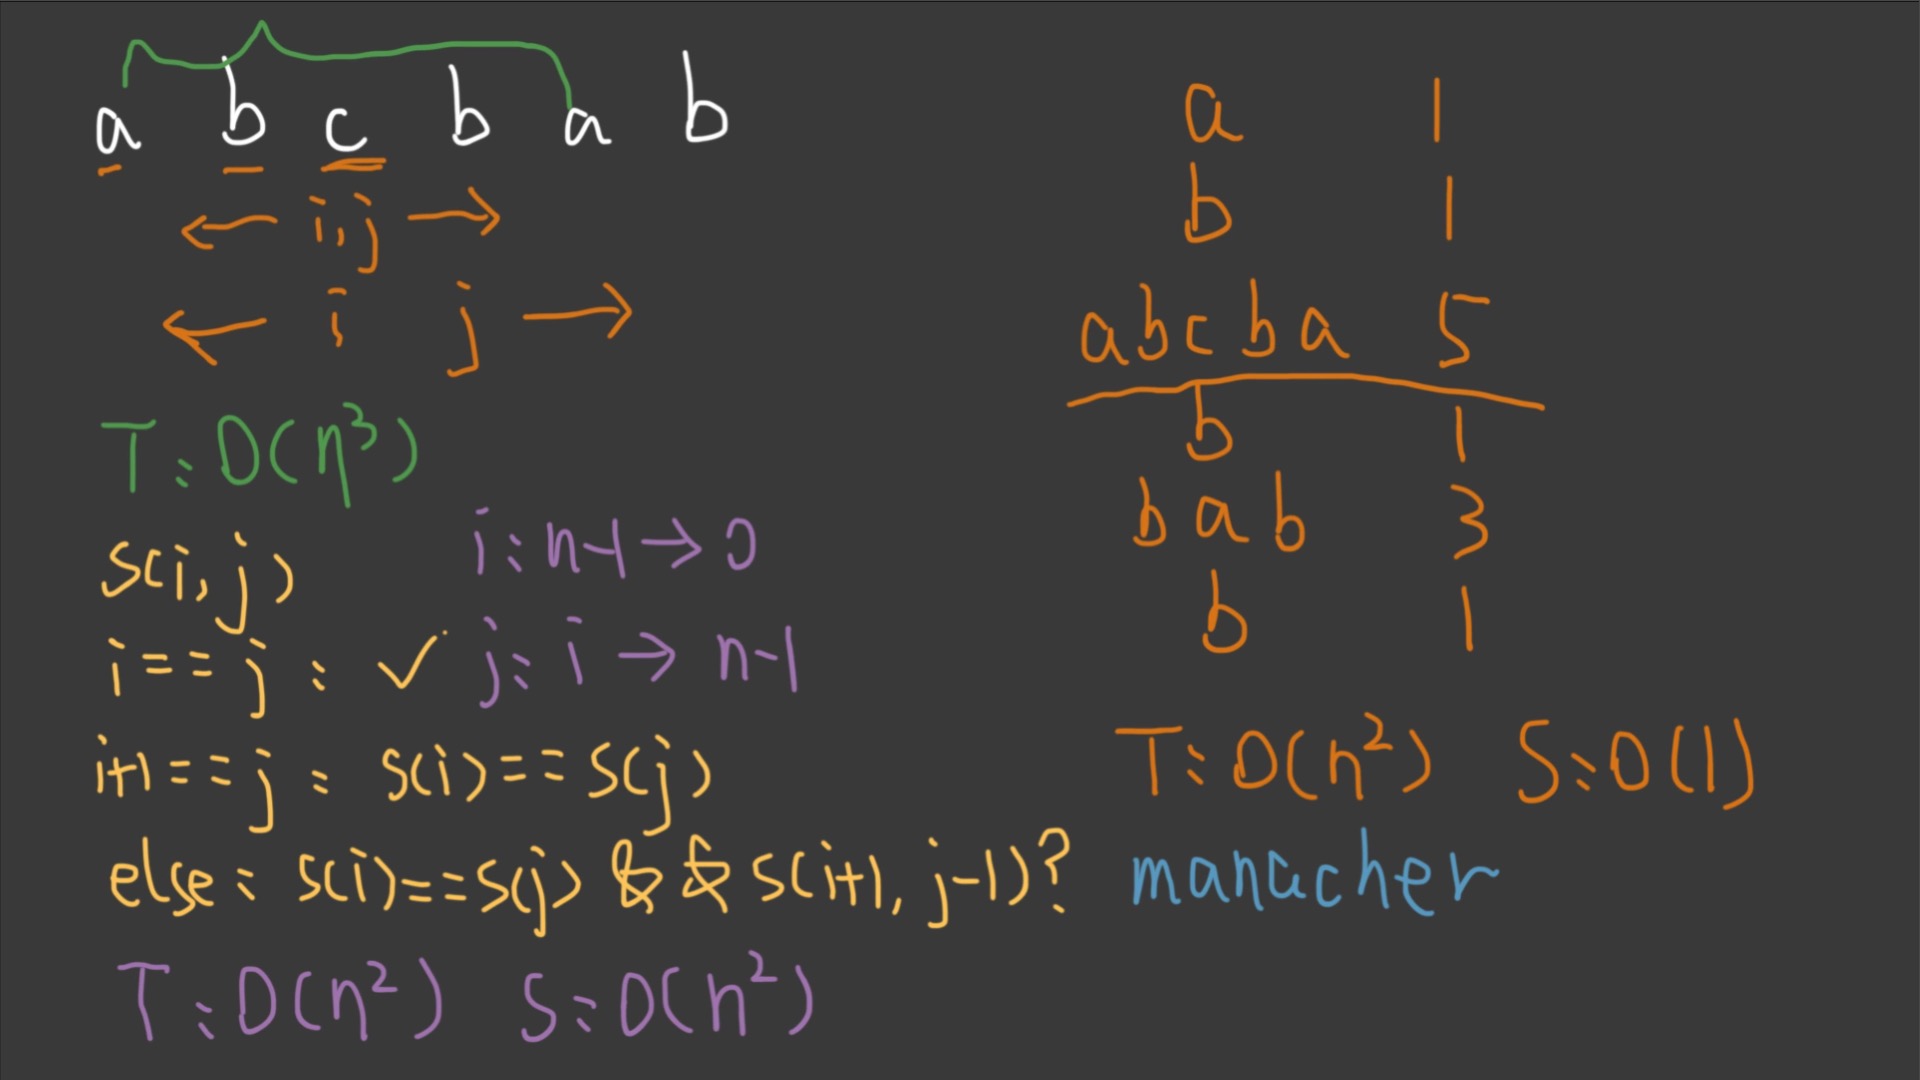 a b c b a b
i,j
i j
T: O(n³)
s(i, j)
i: n-1 → 0
i == j : ✓
j: i → n-1
i+1 == j : s(i) == s(j)
else: s(i) == s(j) && s(i+1, j-1)?
T: O(n²) S: O(n²)
a 1
b 1
abcba 5
b 1
bab 3
b 1
T: O(n²) S: O(1)
manacher